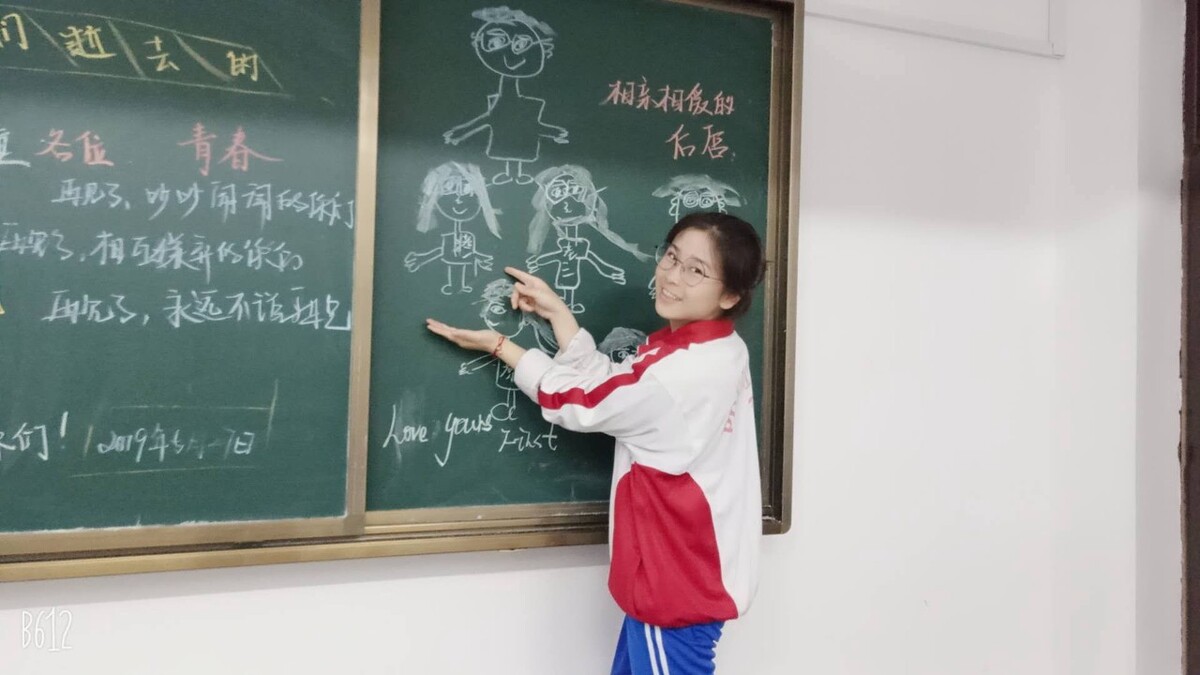 们逝去的
各位 青春
再见了、吵吵闹闹的你们
再见了,相互嫌弃的你们
再见了,永远不说再见
你们!
2019年5月 7日
相亲相爱的
后唐.
胖
老三
Love yours
First
B612